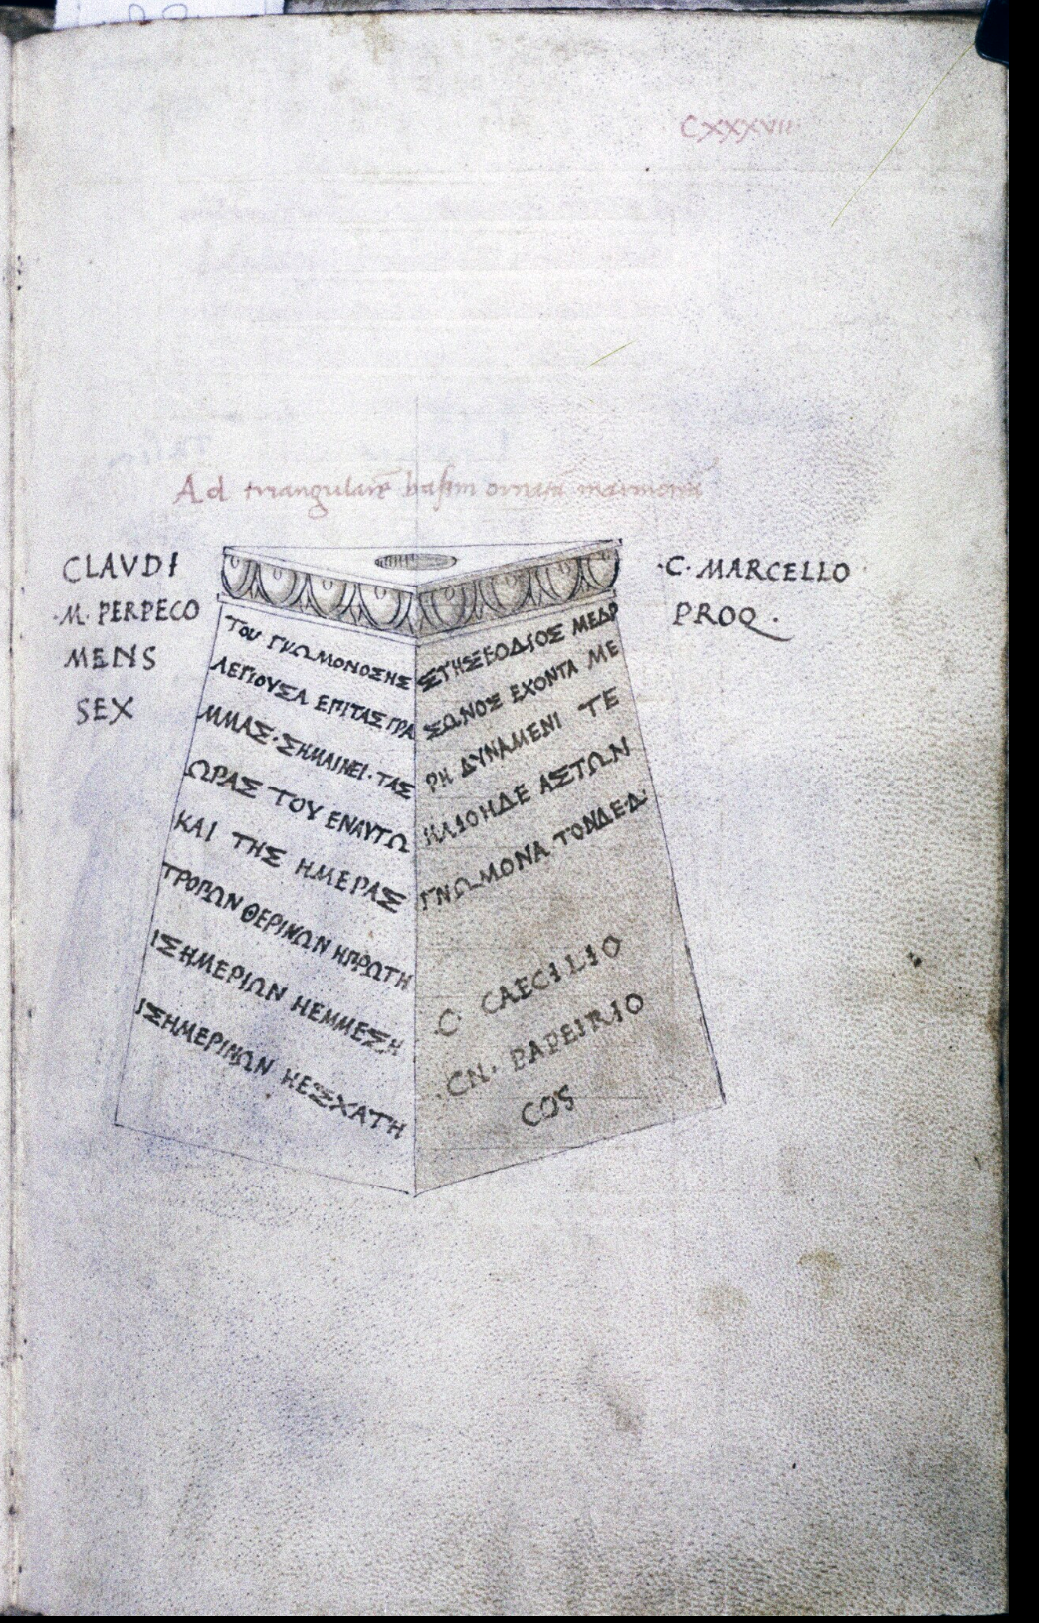 CXXXVII
Ad triangularē basim ornatā marmorea
CLAVDI
·M· PERPECO
MENS
SEX
·C· MARCELLO
PROQ.
ΤΟΥ ΓΝΩΜΟΝΟΣΗΣ
ΛΕΓΙΟΥΣΑ ΕΠΙΤΑΣ ΓΡΑ
ΜΜΑΣ·ΣΗΜΑΙΝΕΙ·ΤΑΣ
ΩΡΑΣ ΤΟΥ ΕΝΑΥΤΩ
ΚΑΙ ΤΗΣ ΗΜΕΡΑΣ
ΤΡΟΠΩΝ ΘΕΡΙΝΩΝ ΗΠΡΩΤΗ
ΙΣΗΜΕΡΙΩΝ ΗΕΜΜΕΣΗ
ΙΣΗΜΕΡΙΝΩΝ ΗΕΣΧΑΤΗ
ΣΤΗΣΕΟΔΙΟΣ ΜΕΔΡ
ΣΩΝΟΣ ΕΧΟΝΤΑ ΜΕ
ΡΗ ΔΥΝΑΜΕΝΙ ΤΕ
ΗΛΙΟΗΔΕ ΑΣΤΩΝ
ΓΝΩΜΟΝΑ ΤΟΝΔΕΔ·
·C· CAECILIO
·CN· PAPEIRIO
COS